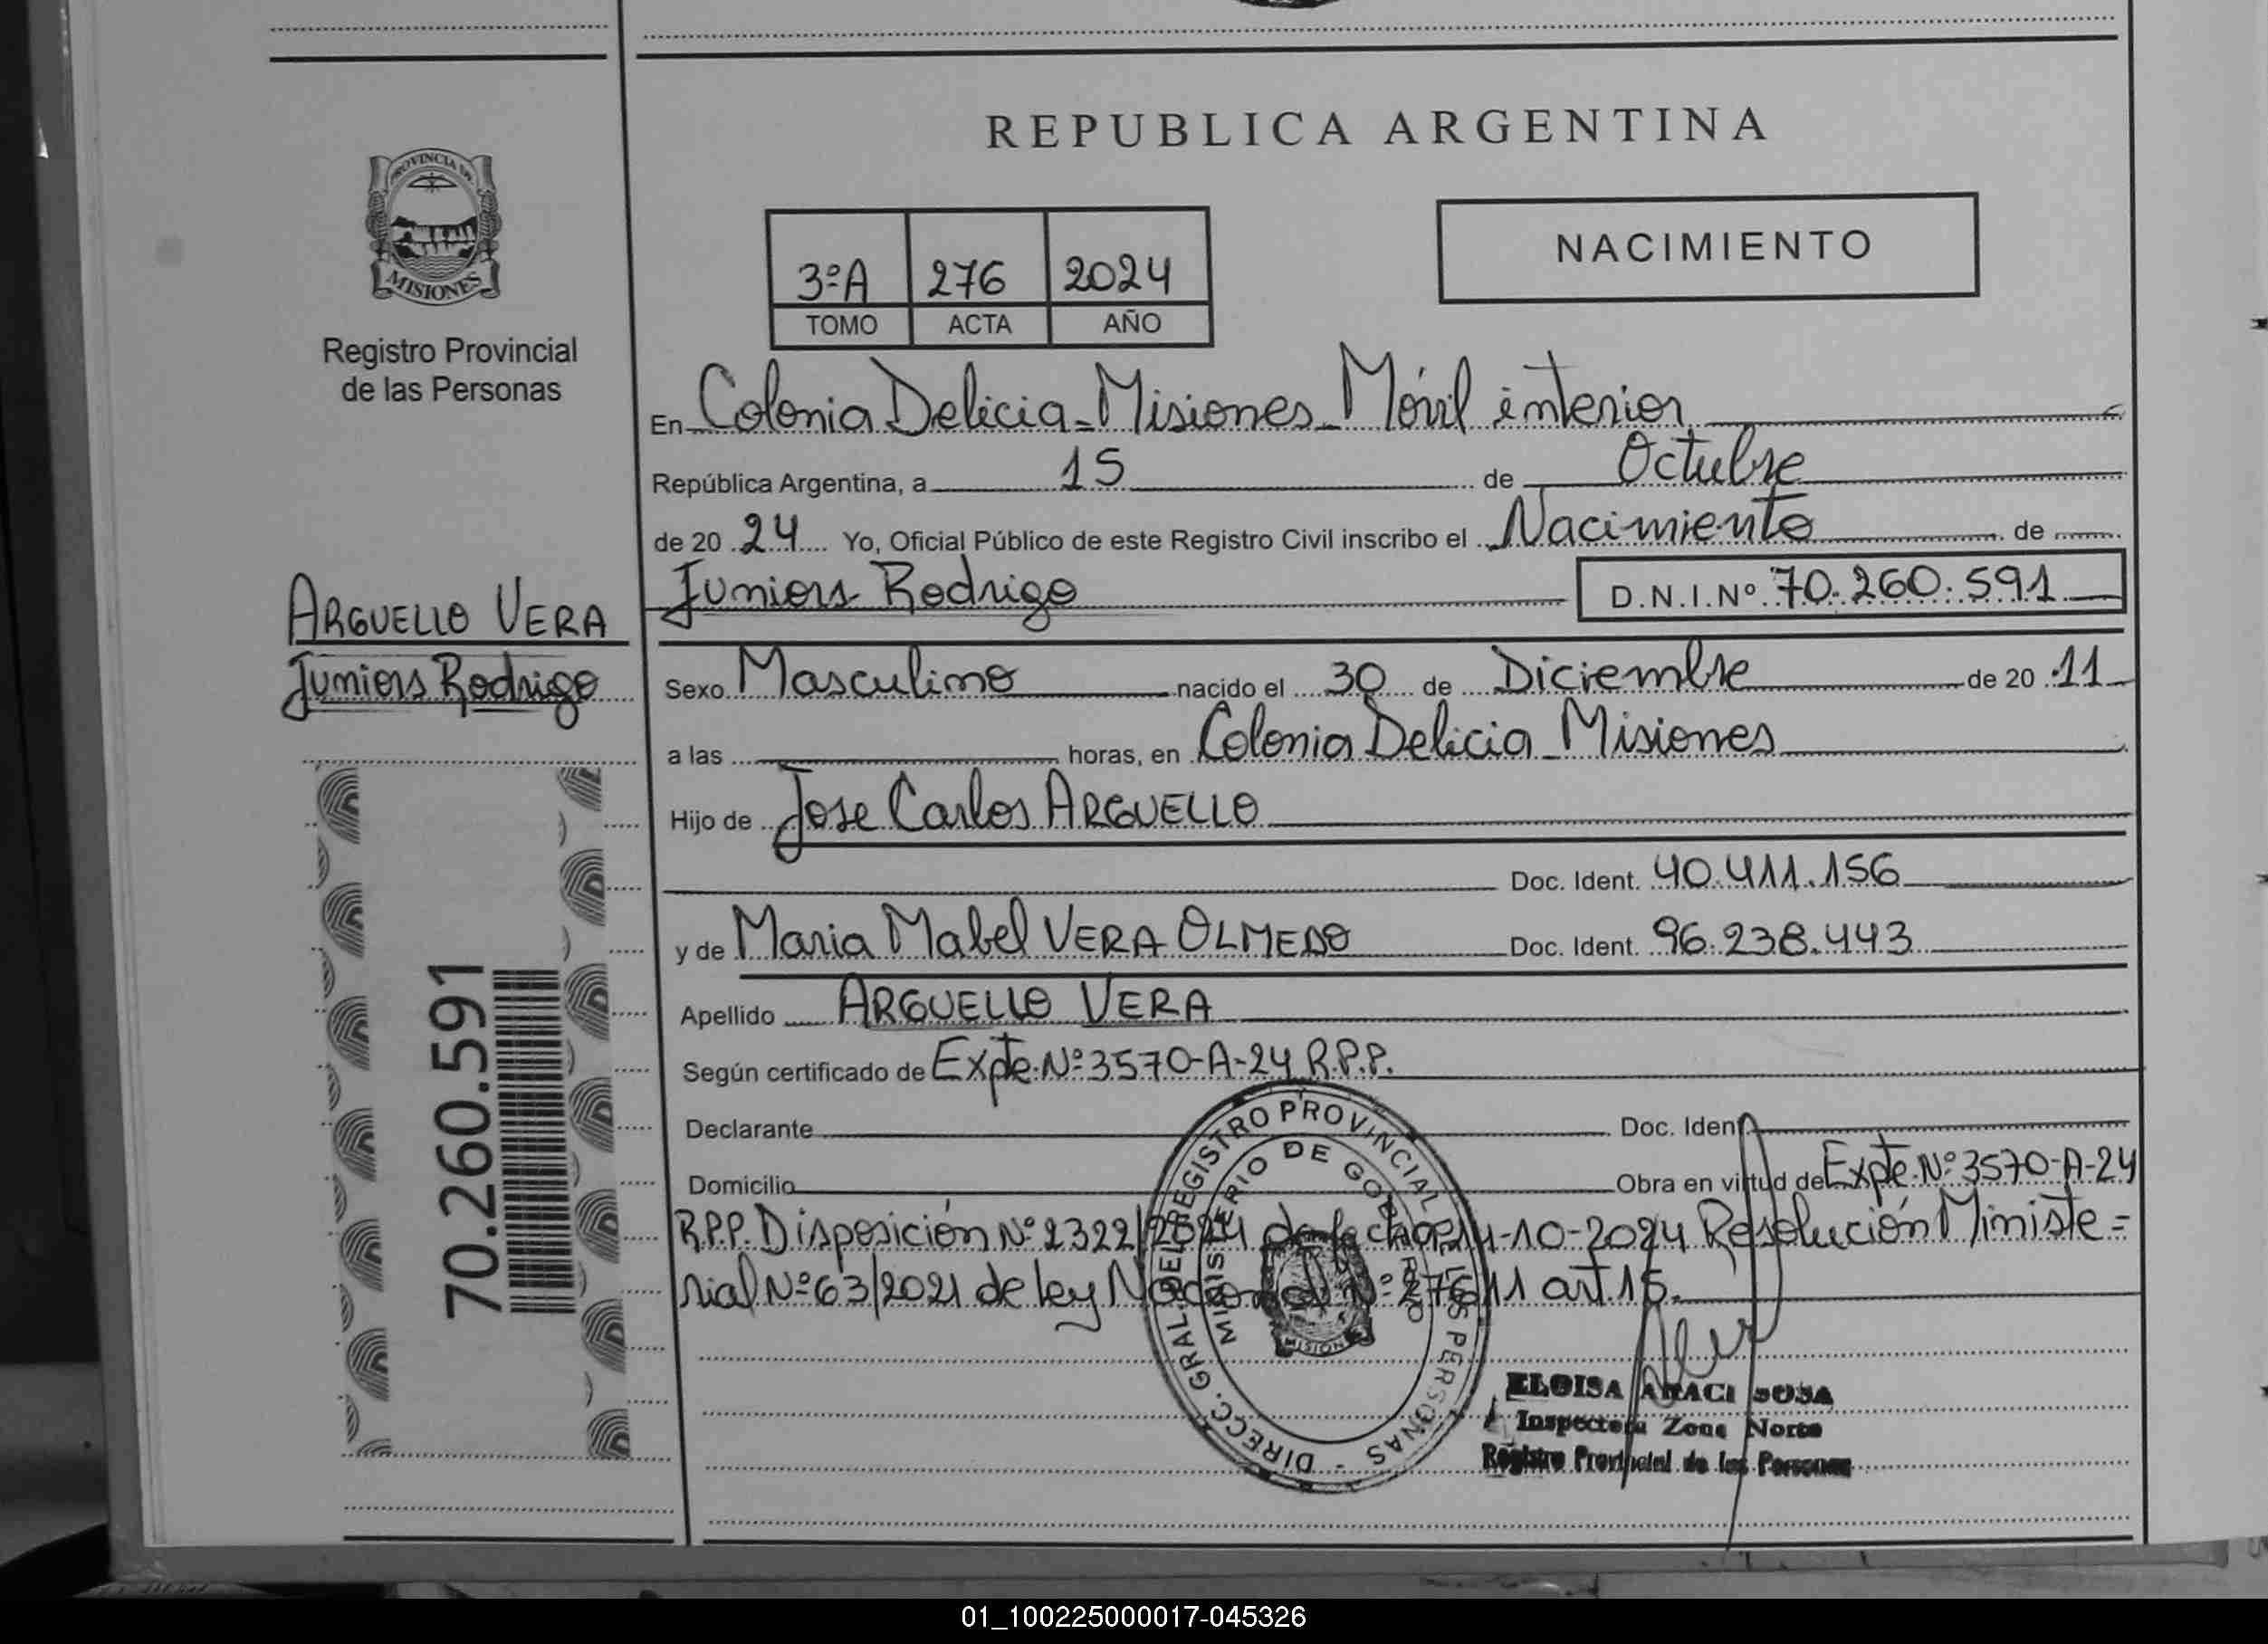 REPUBLICA ARGENTINA
PROVINCIA DE
MISIONES
Registro Provincial
de las Personas
3ºA 276 2024
TOMO ACTA AÑO
NACIMIENTO
En Colonia Delicia - Misiones - Móvil interior
República Argentina, a 15 de Octubre
de 20 24 Yo, Oficial Público de este Registro Civil inscribo el Nacimiento de
Juniors Rodrigo D.N.I.Nº 70.260.591
ARGUELLO VERA
Juniors Rodrigo
Sexo Masculino nacido el 30 de Diciembre de 20 11
a las horas, en Colonia Delicia - Misiones
Hijo de Jose Carlos ARGUELLO
Doc. Ident. 40.411.156
y de Maria Mabel VERA OLMEDO Doc. Ident. 96.238.443
Apellido ARGUELLO VERA
Según certificado de Expte. Nº 3570-A-24 R.P.P.
Declarante Doc. Ident.
Domicilio Obra en virtud de Expte. Nº 3570-A-24
R.P.P. Disposición Nº 2322/2024 de fecha 14-10-2024 Resolución Ministe=
rial Nº 63/2021 de ley Nacional Nº 27611 art. 15.
70.260.591
DIRECC. GRAL. DEL REGISTRO PROVINCIAL DE LAS PERSONAS -
MINISTERIO DE GOBIERNO
MISIONES
ELOISA ARACI SOSA
Inspectora Zona Norte
Registro Provincial de las Personas
01_100225000017-045326